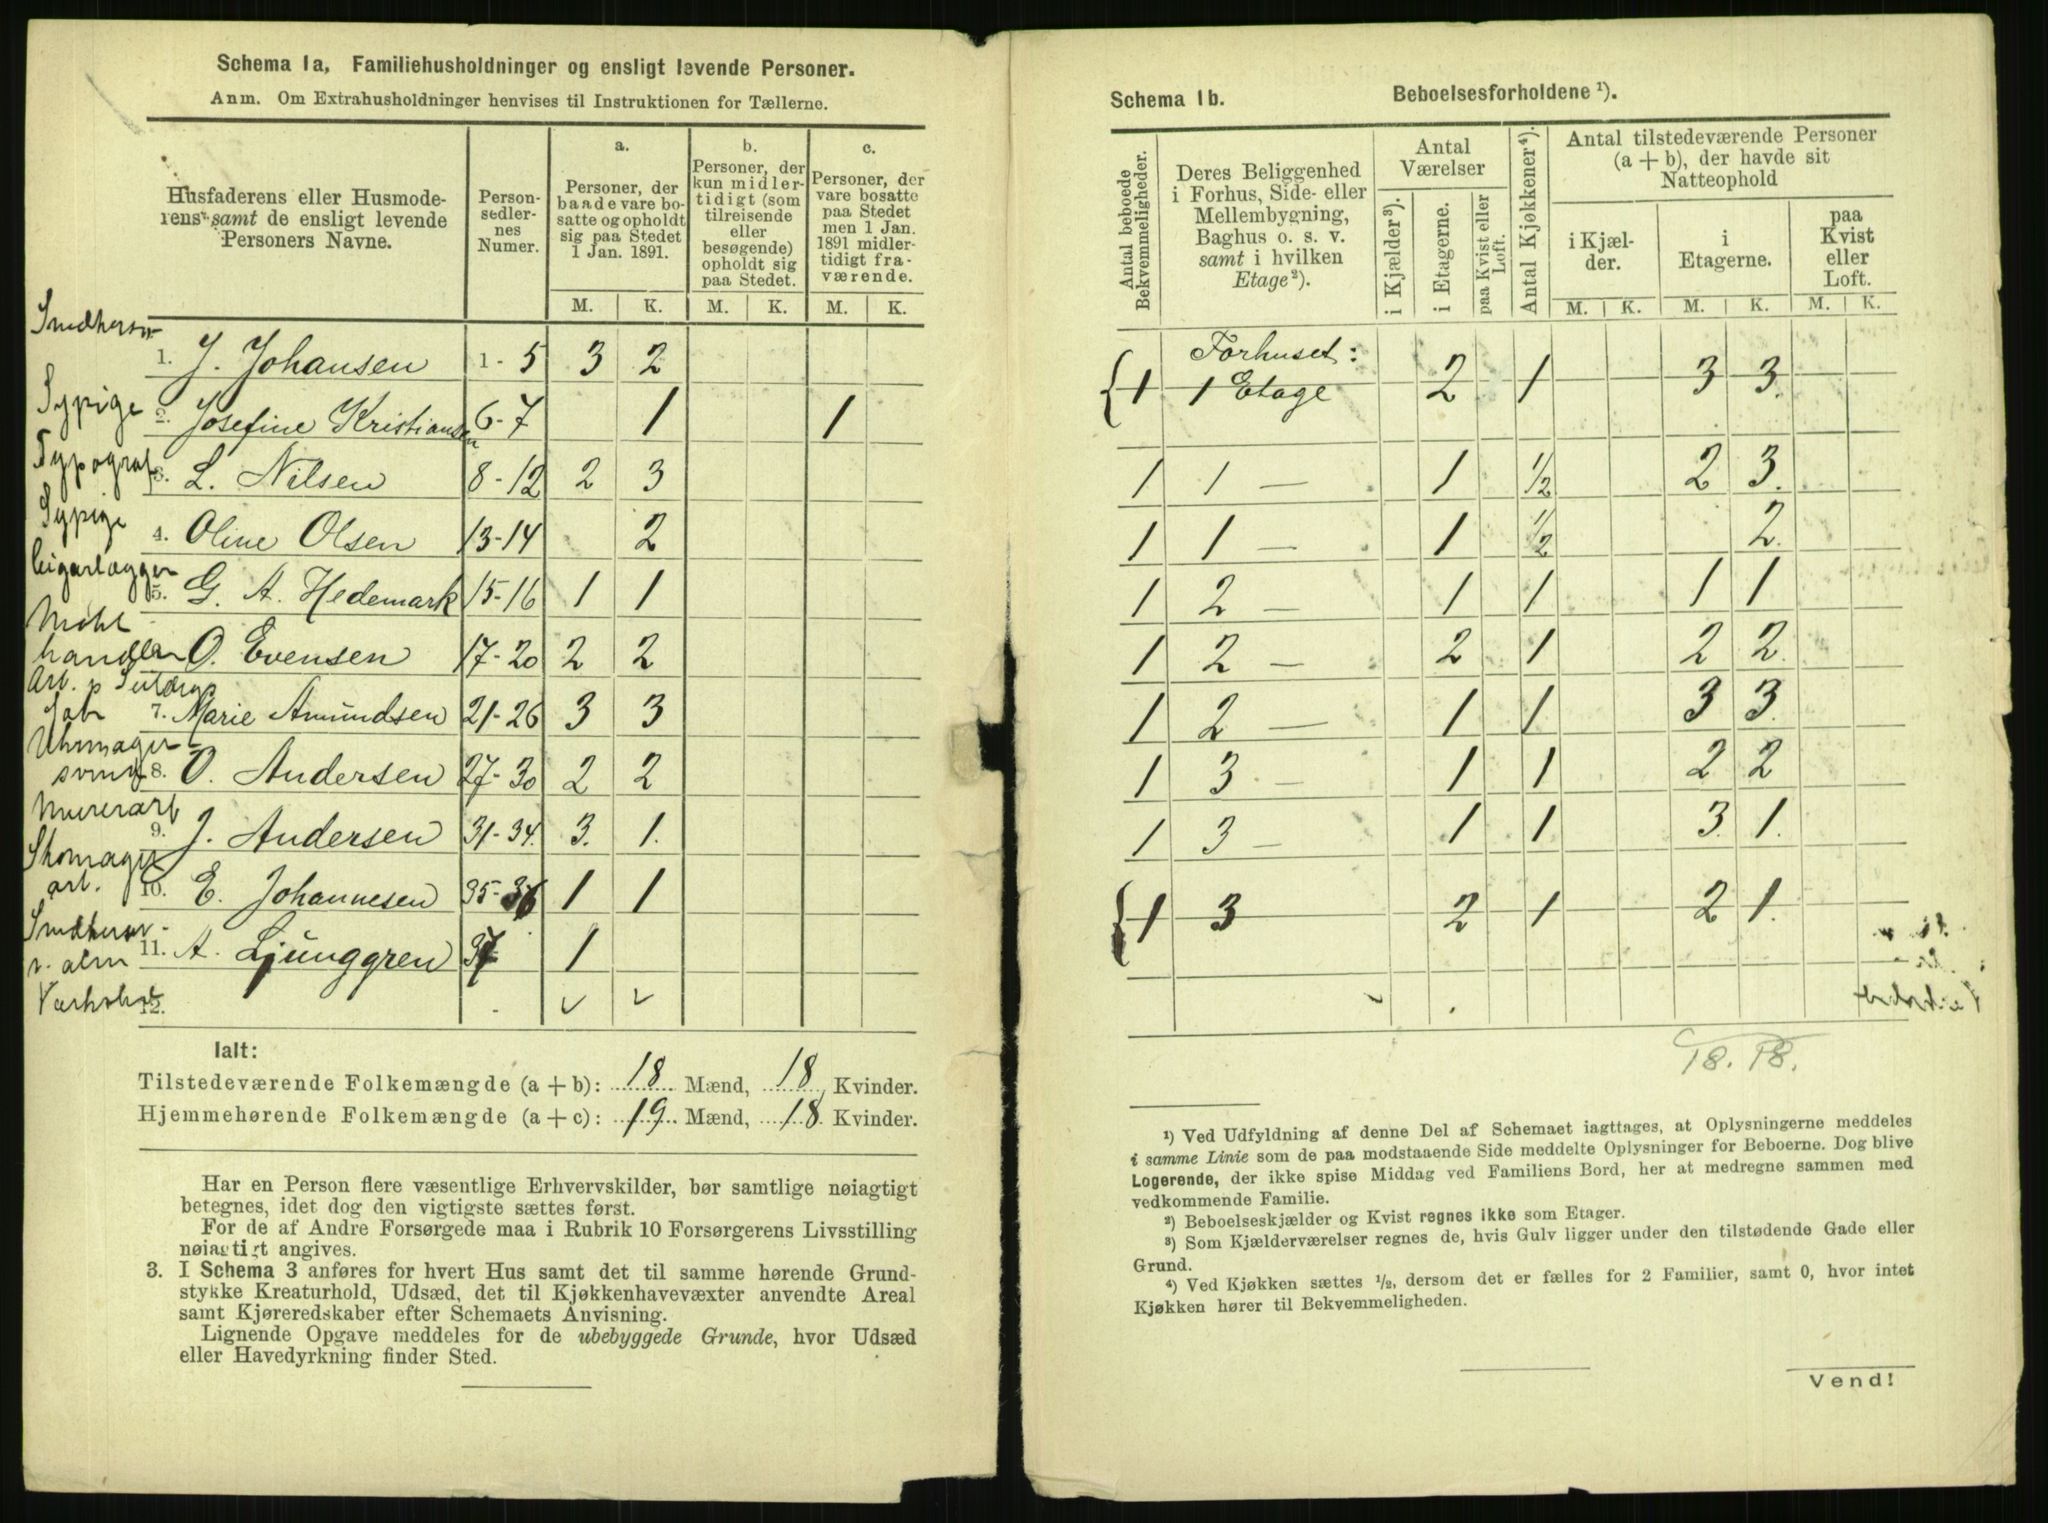 Schema 1a, Familiehusholdninger og ensligt levende Personer.
Anm. Om Extrahusholdninger henvises til Instruktionen for Tællerne.
Husfaderens eller Husmoderens samt de ensligt levende Personers Navne.
Personsedlernes Numer.
a.
Personer, der baade vare bosatte og opholdt sig paa Stedet 1 Jan. 1891.
b.
Personer, der kun midlertidigt (som tilreisende eller besøgende) opholdt sig paa Stedet.
c.
Personer, der vare bosatte paa Stedet men 1 Jan. 1891 midlertidigt fraværende.
M. K. M. K. M. K.
1. J. Johansen 1-5 3 2
Sypige
2. Josefine Kristiansen 6-7 1 1
Typograf
3. L. Nilsen 8-12 2 3
Sypige
4. Oline Olsen 13-14 2
Cigarlægger
5. G. A. Hedemark 15-16 1 1
handler O. Evensen 17-20 2 2
7. Marie Amundsen 21-26 3 3
Uhrmager
svend 8. O. Andersen 27-30 2 2
Murerarb
9. J. Andersen 31-34. 3. 1.
Skomager
arb. 10. E. Johannesen 35-36 1 1
11. A. Ljunggren 37 1
12.
Ialt:
Tilstedeværende Folkemængde (a + b): 18 Mænd, 18 Kvinder.
Hjemmehørende Folkemængde (a + c): 19 Mænd, 18 Kvinder.
Har en Person flere væsentlige Erhvervskilder, bør samtlige nøiagtigt
betegnes, idet dog den vigtigste sættes først.
For de af Andre Forsørgede maa i Rubrik 10 Forsørgerens Livsstilling
nøiagtigt angives.
3. I Schema 3 anføres for hvert Hus samt det til samme hørende Grund-
stykke Kreaturhold, Udsæd, det til Kjøkkenhavevæxter anvendte Areal
samt Kjøreredskaber efter Schemaets Anvisning.
Lignende Opgave meddeles for de ubebyggede Grunde, hvor Udsæd
eller Havedyrkning finder Sted.
Schema 1b. Beboelsesforholdene ¹).
Antal beboede Bekvemmeligheder.
Deres Beliggenhed i Forhus, Side- eller Mellembygning, Baghus o. s. v. samt i hvilken Etage ²).
Antal Værelser
i Kjælder ³).
i Etagerne.
paa Kvist eller Loft.
Antal Kjøkkener ⁴).
Antal tilstedeværende Personer (a + b), der havde sit Natteophold
i Kjælder.
i Etagerne.
paa Kvist eller Loft.
M. K. M. K. M. K.
Forhuset:
1 1 Etage 2 1 3 3.
1 1 — 1 1/2 2 3.
1 1 — 1 1/2 2.
1 2 — 1 1 1 1
1 2 — 2 1 2 2.
1 2 — 1 1 3 3.
1 3 — 1 1 2 2
1 3 — 1 1 3. 1.
1 3 2 1 2 1.
18. 18.
¹) Ved Udfyldning af denne Del af Schemaet iagttages, at Oplysningerne meddeles
i samme Linie som de paa modstaaende Side meddelte Oplysninger for Beboerne. Dog blive
Logerende, der ikke spise Middag ved Familiens Bord, her at medregne sammen med
vedkommende Familie.
²) Beboelseskjælder og Kvist regnes ikke som Etager.
³) Som Kjælderværelser regnes de, hvis Gulv ligger under den tilstødende Gade eller
Grund.
⁴) Ved Kjøkken sættes 1/2, dersom det er fælles for 2 Familier, samt 0, hvor intet
Kjøkken hører til Bekvemmeligheden.
Vend!